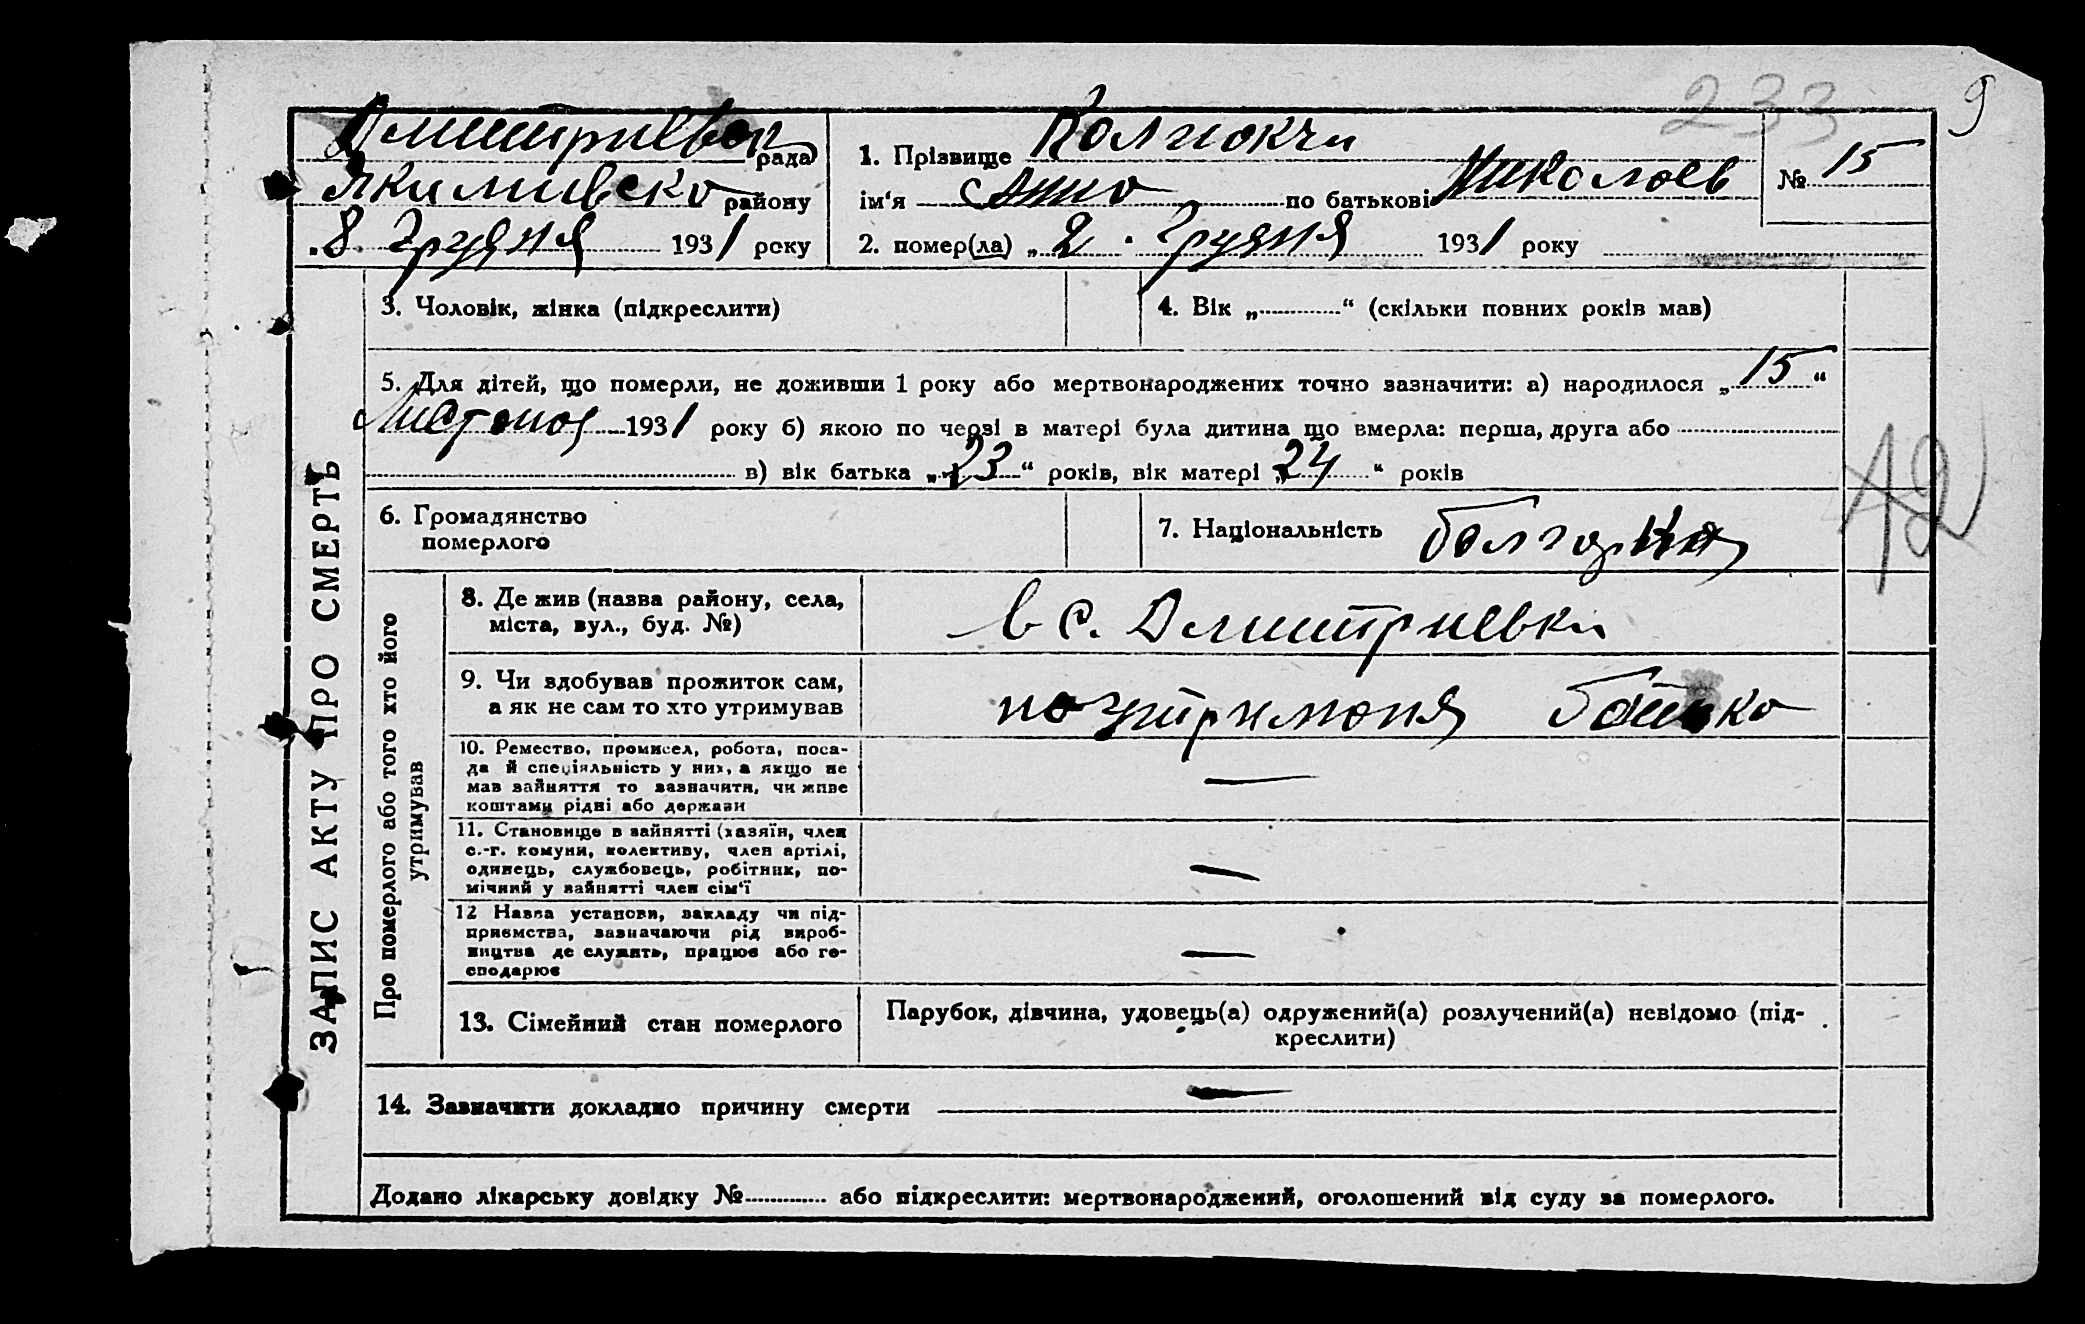 233
9
Дмитриевск рада
Якимивско району
„8 Грудня 1931 року
1. Прізвище Калиокчи
ім'я Анно по батькові Николаев
2. помер(ла) „2" Грудня 1931 року
№ 15
ЗАПИС АКТУ ПРО СМЕРТЬ
3. Чоловік, жінка (підкреслити)
4. Вік „ “ (скільки повних років мав)
5. Для дітей, що померли, не доживши 1 року або мертвонароджених точно зазначити: а) народилося „15“
Листопод 1931 року б) якою по черзі в матері була дитина що вмерла: перша, друга або
в) вік батька „23“ років, вік матері „24“ років
42
6. Громадянство
померлого
7. Національність болгарка
Про померлого або того хто його
утримував
8. Де жив (назва району, села,
міста, вул., буд. №)
в с. Дмитриевки
9. Чи здобував прожиток сам,
а як не сам то хто утримував
на утриманя батько
10. Ремество, промисел, робота, поса-
да й спеціяльність у них, а якщо не
мав зайняття то зазначити, чи живе
коштами рідні або держави
—
11. Становище в зайнятті (хазяїн, член
с.-г. комуни, колективу, член артілі,
одинець, службовець, робітник, по-
мічний у зайнятті член сім'ї
—
12 Назва установи, закладу чи під-
приємства, зазначаючи рід вироб-
ництва де служить, працює або го-
сподарює
—
13. Сімейний стан померлого
Парубок, дівчина, удовець(а) одружений(а) розлучений(а) невідомо (під-
креслити)
14. Зазначити докладно причину смерти —
Додано лікарську довідку № або підкреслити: мертвонароджений, оголошений від суду за померлого.